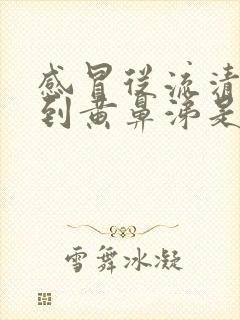 感冒从流清
到黄鼻涕是
雪舞冰凝